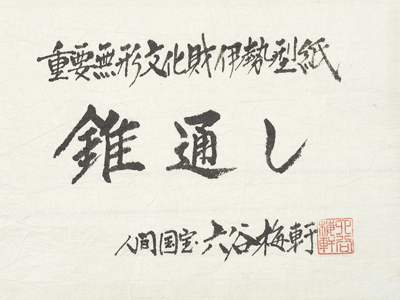 重要無形文化財伊勢型紙
錐通し
人間国宝・六谷梅軒
六谷梅軒